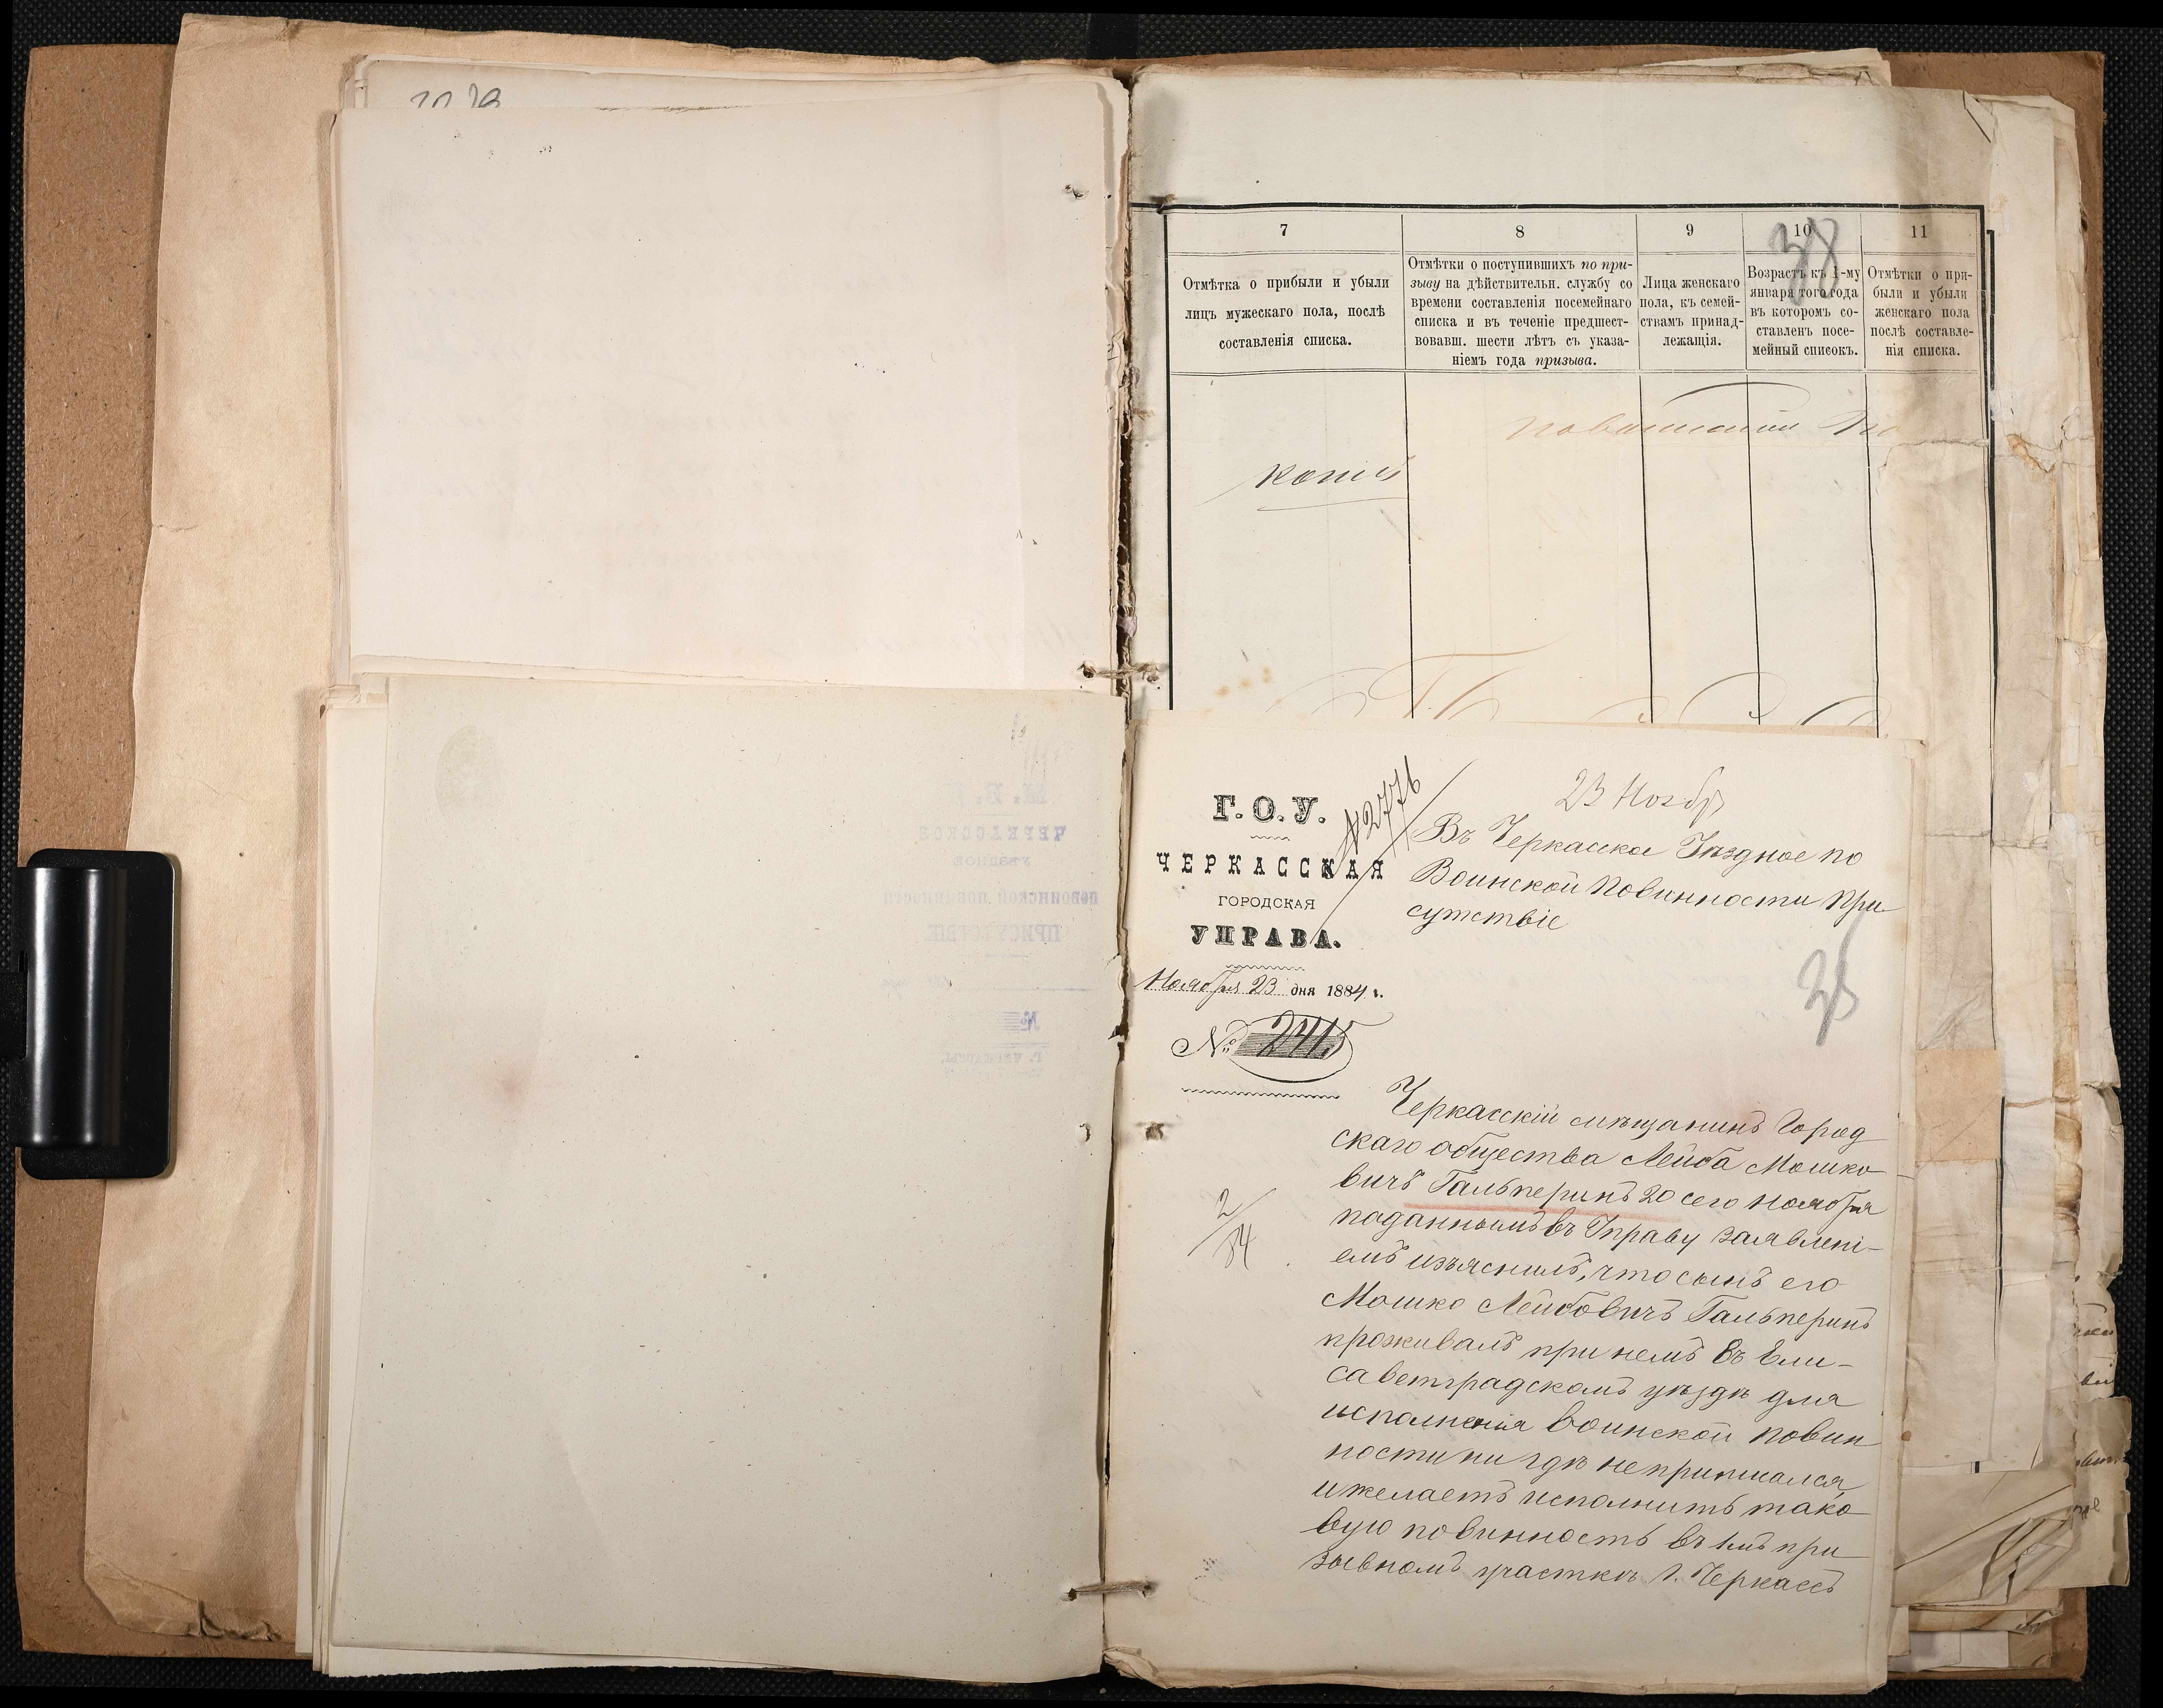 7
8
9
10
11
38
Отмѣтка о прибыли и убыли
лицъ мужескаго пола, послѣ
составленія списка.
Отмѣтки о поступившихъ по при-
зыву на дѣйствительн. службу со
времени составленія посемейнаго
списка и въ теченіе предшест-
вовавш. шести лѣтъ съ указа-
ніемъ года призыва.
Лица женскаго
пола, къ семей-
ствамъ принад-
лежащія.
Возрастъ къ 1-му
января того года
въ которомъ со-
ставленъ посе-
мейный списокъ.
Отмѣтки о при-
были и убыли
женскаго пола
послѣ составле-
нія списка.
Г. О. У.
ЧЕРКАССКАЯ
ГОРОДСКАЯ
УПРАВА.
Ноября 23 дня 1884 г.
№ 2415
№2776
23 Ноябр
Въ Черкаское Уѣздное по
Воинской Повинности При
сутствіе
38
2/84
Черкасскій мѣщанинъ Город
скаго общества Лейба Мошко
вичъ Гальперинъ 20 сего Ноября
поданнымъ въ Управу заявлені-
емъ изъяснилъ, что сынъ его
Мошко Лейбовичъ Гальперинъ
проживалъ при немъ въ Ели-
саветградскомъ уѣздѣ для
исполненія воинской повин
ности ни гдѣ не приписался
и желаетъ исполнить тако
вую повинность въ 1мъ при
зывномъ участкѣ г. Черкассъ